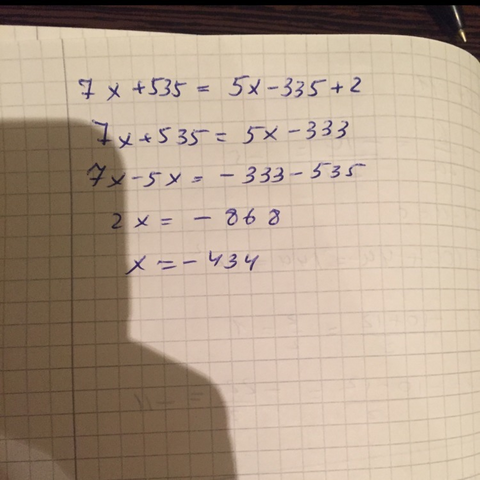 7x+535 = 5x-335+2
7x+535 = 5x-333
7x-5x = -333-535
2x = -868
x = -434